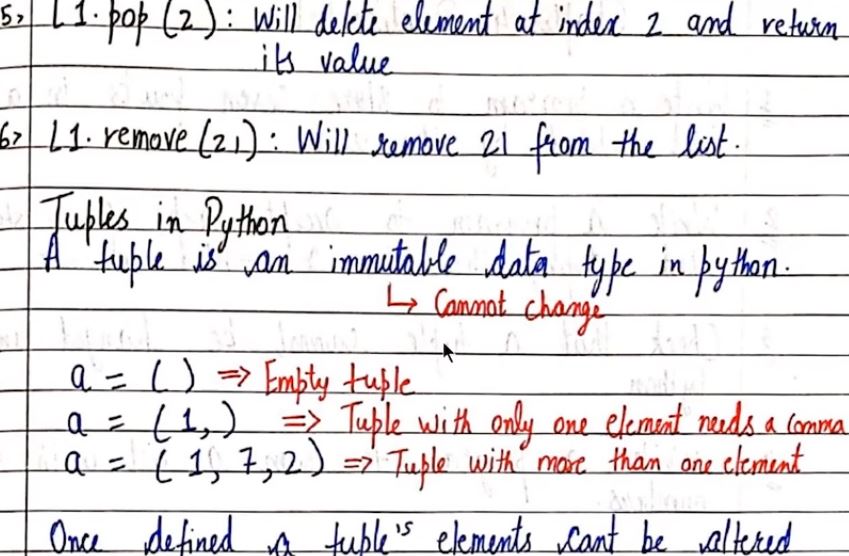 5> L1.pop(2): Will delete element at index 2 and return
its value
6> L1.remove(21): Will remove 21 from the list.
Tuples in Python
A tuple is an immutable data type in python.
↳ Cannot change
a = ( ) => Empty tuple
a = (1,) => Tuple with only one element needs a comma
a = (1, 7, 2) => Tuple with more than one element
Once defined a tuple's elements cant be altered